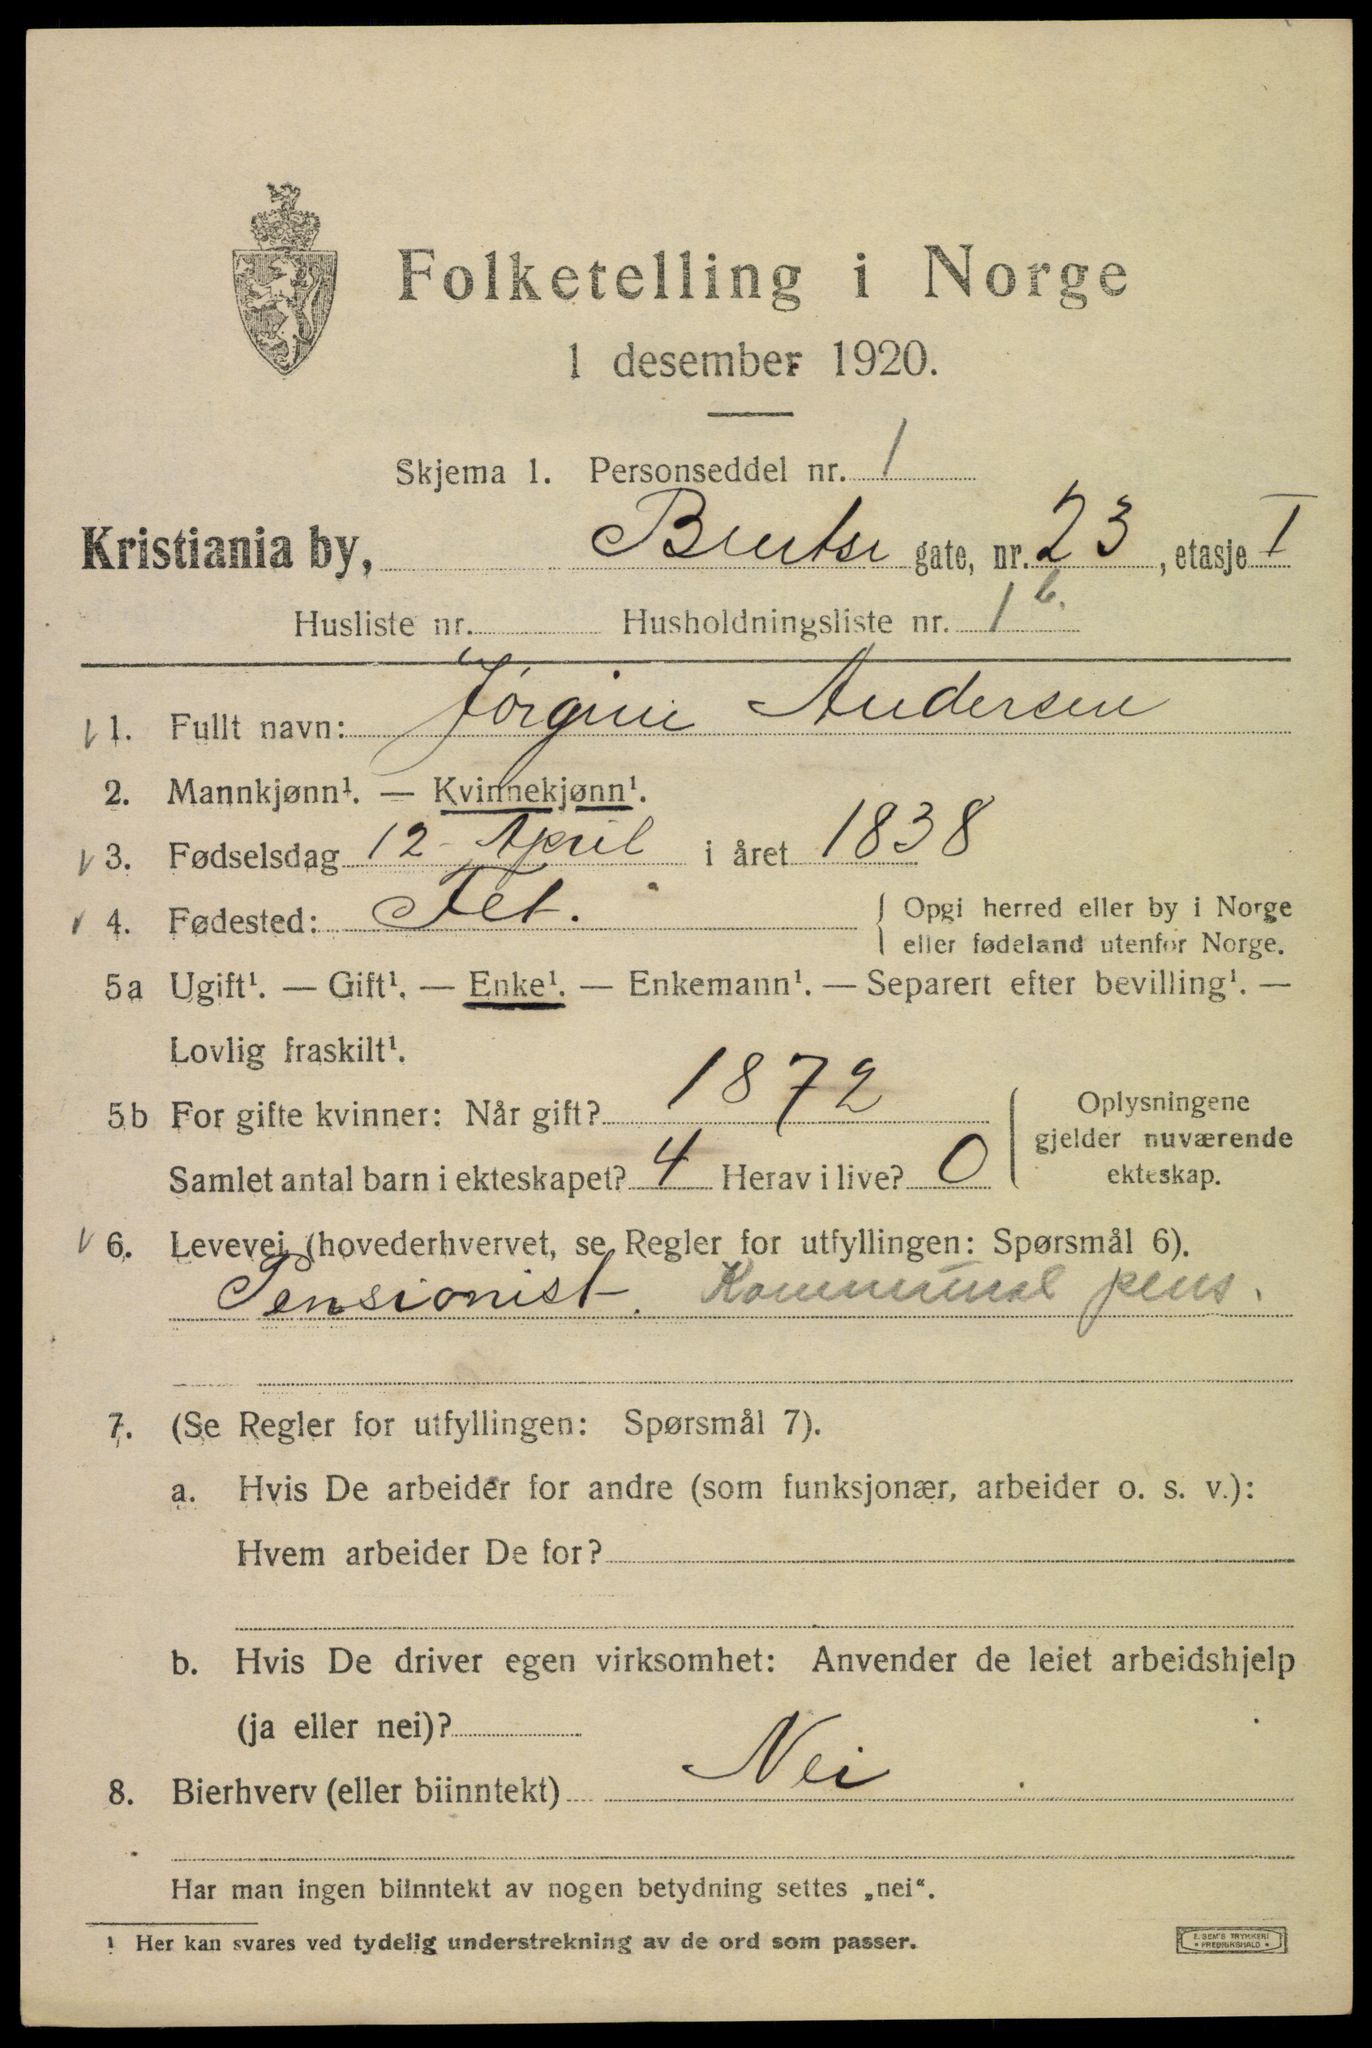 Folketelling i Norge
1 desember 1920.
Skjema 1. Personseddel nr. 1
Kristiania by, Bentse gate, nr. 23, etasje I
Husliste nr. Husholdningsliste nr. 1 b.
1. Fullt navn: Jørgine Andersen
2. Mannkjønn¹. — Kvinnekjønn¹.
3. Fødselsdag 12 April i året 1838
4. Fødested: Fet. Opgi herred eller by i Norge
eller fødeland utenfor Norge.
5a Ugift¹. — Gift¹. — Enke¹. — Enkemann¹. — Separert efter bevilling¹. —
Lovlig fraskilt¹.
5b For gifte kvinner: Når gift? 1872
Samlet antal barn i ekteskapet? 4 Herav i live? 0
Oplysningene
gjelder nuværende
ekteskap.
6. Levevei (hovederhvervet, se Regler for utfyllingen: Spørsmål 6).
Pensionist. Kommunal pens.
7. (Se Regler for utfyllingen: Spørsmål 7).
a. Hvis De arbeider for andre (som funksjonær, arbeider o. s. v.):
Hvem arbeider De for?
b. Hvis De driver egen virksomhet: Anvender de leiet arbeidshjelp
(ja eller nei)?
8. Bierhverv (eller biinntekt) Nei
Har man ingen biinntekt av nogen betydning settes „nei“.
¹ Her kan svares ved tydelig understrekning av de ord som passer.
E. SEM'S TRYKKERI
• FREDRIKSHALD •